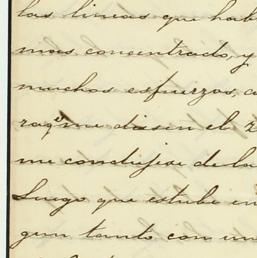 las líneas que hab
mas concentrado, y
muchos esfuerzos, a
me diesen el 2
me condujese de la
Luego que estube en
gun tanto con un